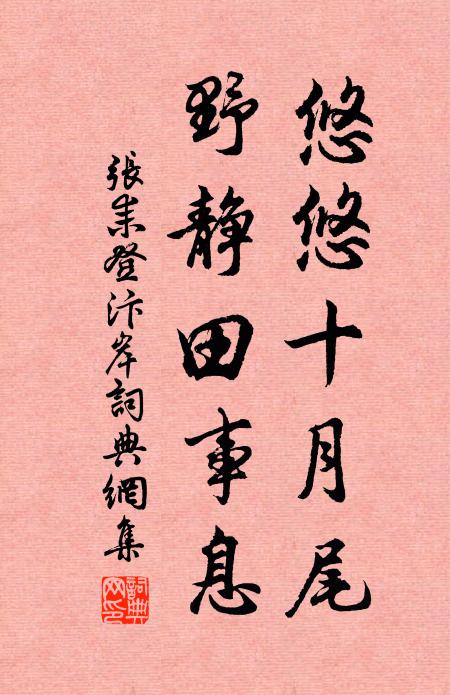 悠悠十月尾
野静田事息
張耒登汴岸詞典網集
詞典网印